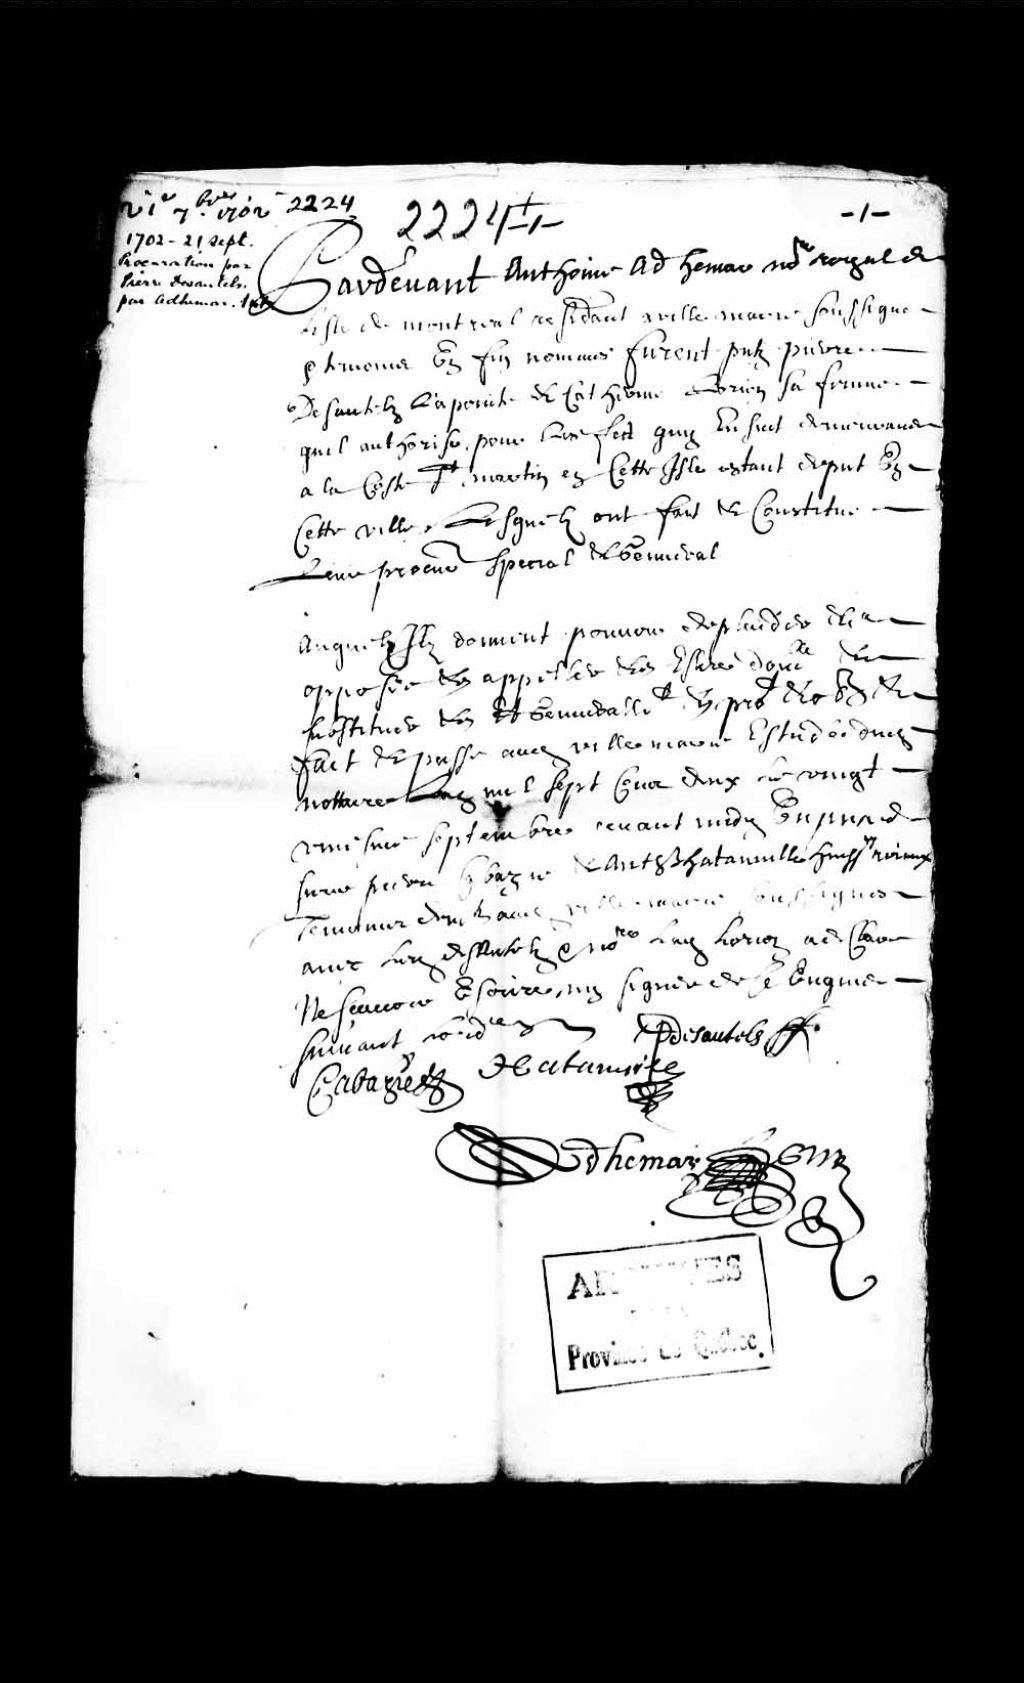 21e 7bre 1702 2224
2224 -1-
-1-
1702 - 21 sept.
Procuration par
Pierre Desautels.
par Adhemar. Nre
Pardevant Anthoine Adhemar nore royal de
L'isle de montreal residant a ville marie soussigne
& temoins En fin nommes furent pntz pierre
Desautelz Lapointe & Catherine Lorion sa femme
quil authorise pour Leffect quy Ensuit demeurant
a la Coste St martin en Cette Isle estant de pnt En
Cette ville, Lesquelz ont fait & Constitué
Leur procur special & General
Auquelz Ilz donnent pouvoir de plaider
opposer & appeller & Eslire domlle &
substituer & Generallet & prot & ob &
fait & passé aud ville marie Estude dud
nottaire Lan mil sept Cens deux le vingt
uniesme septembre avant midy En presence
sieur pierre Cabazie & Anth hatanville huissrs
Temoins demt aud ville marie soussignes
avec led desautelz & nore Lad Lorion a de
Ne scavoir Escrire, ny signer de ce Enquise
suivant lordce
PDesautels
Cabazié Hatanville
Adhemar
ARCHIVES
Province de Québec.